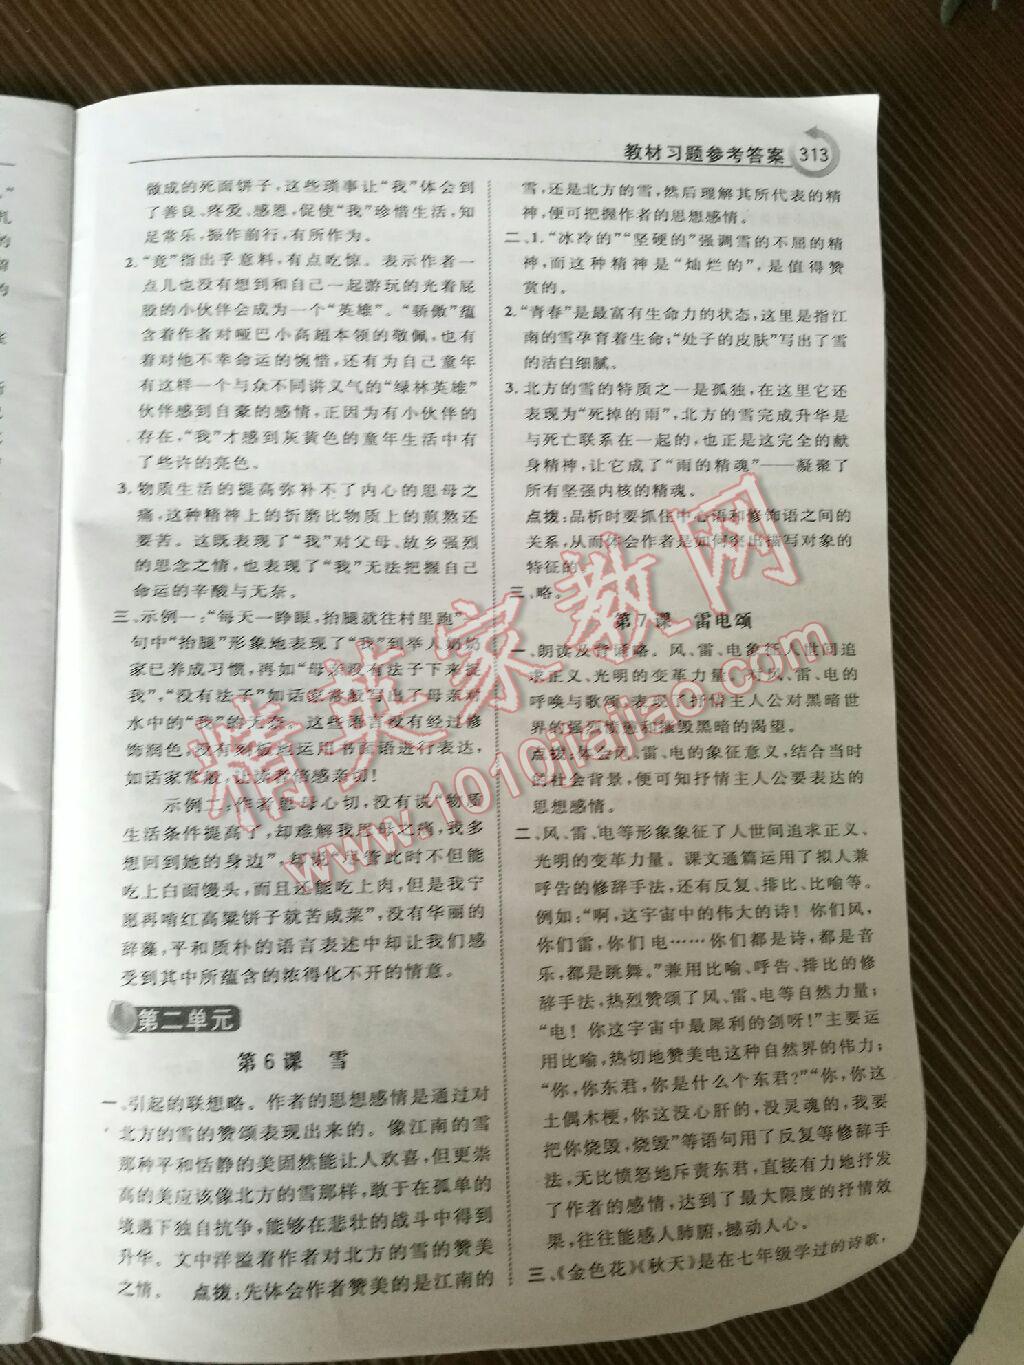 教材习题参考答案 313
做成的死面饼子，这些琐事让“我”体会到
了善良、疼爱、感恩，促使“我”珍惜生活，知
足常乐，振作前行，有所作为。
2.“竟”指出乎意料，有点吃惊。表示作者一
点儿也没有想到和自己一起游玩的光着屁
股的小伙伴会成为一个“英雄”。“骄傲”蕴
含着作者对哑巴小高超本领的敬佩，也有
着对他不幸命运的惋惜，还有为自己童年
有这样一个与众不同讲义气的“绿林英雄”
伙伴感到自豪的感情，正因为有小伙伴的
存在，“我”才感到灰黄色的童年生活中有
了些许的亮色。
3.物质生活的提高弥补不了内心的思母之
痛，这种精神上的折磨比物质上的煎熬还
要苦。这既表现了“我”对父母、故乡强烈
的思念之情，也表现了“我”无法把握自己
命运的辛酸与无奈。
三、示例一：“每天一睁眼，抬腿就往村里跑”
句中“抬腿”形象地表现了“我”到举人奶奶
家已养成习惯，再如“母亲没有法子下来捉
我”，“没有法子”如话家常般写出了母亲对
水中的“我”的无奈。这些语言没有经过修
饰润色，没有刻板地运用书面语进行表达，
如话家常般，让读者倍感亲切！
示例二：作者思母心切，没有说“物质
生活条件提高了，却难解我思母之痛，我多
想回到她的身边”，却说“尽管此时不但能
吃上白面馒头，而且还能吃上肉，但是我宁
愿再啃红高粱饼子就苦咸菜”，没有华丽的
辞藻，平和质朴的语言表述中却让我们感
受到其中所蕴含的浓得化不开的情意。
第二单元
第6课 雪
一、引起的联想略。作者的思想感情是通过对
北方的雪的赞颂表现出来的。像江南的雪
那种平和恬静的美固然能让人欢喜，但更崇
高的美应该像北方的雪那样，敢于在孤单的
境遇下独自抗争，能够在悲壮的战斗中得到
升华。文中洋溢着作者对北方的雪的赞美
之情。 点拨：先体会作者赞美的是江南的
雪，还是北方的雪，然后理解其所代表的精
神，便可把握作者的思想感情。
二、1.“冰冷的”“坚硬的”强调雪的不屈的精
神，而这种精神是“灿烂的”，是值得赞
赏的。
2.“青春”是最富有生命力的状态，这里是指江
南的雪孕育着生命；“处子的皮肤”写出了雪
的洁白细腻。
3.北方的雪的特质之一是孤独，在这里它还
表现为“死掉的雨”，北方的雪完成升华是
与死亡联系在一起的，也正是这完全的献
身精神，让它成了“雨的精魂”——凝聚了
所有坚强内核的精魂。
点拨：品析时要抓住中心语和修饰语之间的
关系，从而体会作者是如何突出描写对象的
特征的。
三、略。
第7课 雷电颂
一、朗读及背诵略。风、雷、电象征人世间追
求正义、光明的变革力量。对风、雷、电的
呼唤与歌颂，表现了抒情主人公对黑暗世
界的强烈愤懑和摧毁黑暗的渴望。
点拨：体会风、雷、电的象征意义，结合当时
的社会背景，便可知抒情主人公要表达的
思想感情。
二、风、雷、电等形象象征了人世间追求正义、
光明的变革力量。课文通篇运用了拟人兼
呼告的修辞手法，还有反复、排比、比喻等。
例如：“啊，这宇宙中的伟大的诗！你们风，
你们雷，你们电……你们都是诗，都是音
乐，都是跳舞。”兼用比喻、呼告、排比的修
辞手法，热烈赞颂了风、雷、电等自然力量；
“电！你这宇宙中最犀利的剑呀！”主要运
用比喻，热切地赞美电这种自然界的伟力；
“你，你东君，你是什么个东君？”“你，你这
土偶木梗，你这没心肝的，没灵魂的，我要
把你烧毁，烧毁”等语句用了反复等修辞手
法，无比愤怒地斥责东君，直接有力地抒发
了作者的感情，达到了最大限度的抒情效
果，往往能感人肺腑，撼动人心。
三、《金色花》《秋天》是在七年级学过的诗歌，
精英家教网
www.1010jiajiao.com